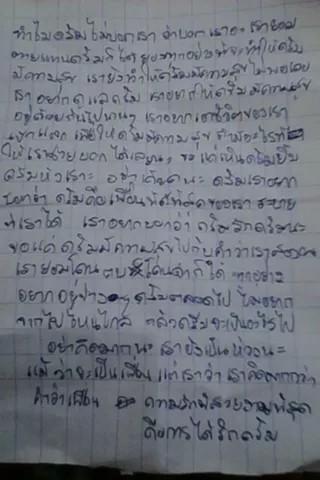 ทำไมดรีมไม่บอกเรา ถ้าบอกเรานะ เรายอม
ตายแทนดรีมก็ได้ ทุกอย่างที่จะทำให้ดรีม
มีความสุข เรายังทำให้ดรีมมีความสุขไม่พอเลย
เราอยากดูแลดรีม เราอยากให้ดรีมมีความสุข
อยู่ด้วยกันไปนานๆ เราอยากเอาชีวิตของเรา
แลก เพื่อให้ดรีมมีความสุข ถ้ามีอะไรที่
ให้เราช่วยบอกได้เลยนะ ขอแค่เห็นดรีมยิ้ม
ดรีมหัวเราะ อย่าคิดนะ ดรีมเราอยาก
บอกว่า ดรีมคือเพื่อนที่ดีที่สุดของเรา
ที่เราได้ เราอยากบอกว่า ดรีมรักดรีมนะ
ขอแค่ดรีมมีความสุขไปกับคำว่าเรา
เรายอมโดนตบ โดนด่าก็ได้ ทุกอย่าง
อยากอยู่ข้างๆ ดรีมตลอดไป ไม่อยาก
จากไปไหนไกล แล้วดรีมจะเป็นอะไรไป
อย่าคิดมากนะ เรายังเป็นห่วงนะ
แม้ว่าจะเป็นเพื่อน แต่เราว่า เราคิดมากกว่า
คำว่าเพื่อน ความรักที่สวยงามที่สุด
คือการได้รักดรีม